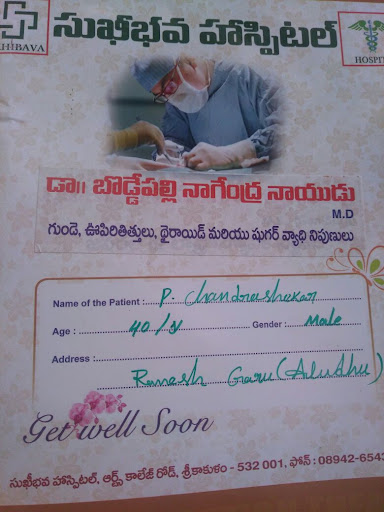 సుఖీభవ హాస్పిటల్
HIBAVA
HOSPIT
డా॥ బొడ్డేపల్లి నాగేంద్ర నాయుడు
M.D
గుండె, ఊపిరితిత్తులు, థైరాయిడ్ మరియు షుగర్ వ్యాధి నిపుణులు
Name of the Patient : P. Chandrashekar
Age : 40/y Gender : Male
Address :
Ramesh Garu
Get well Soon
సుఖీభవ హాస్పిటల్, ఆర్ట్స్ కాలేజ్ రోడ్, శ్రీకాకుళం - 532 001. ఫోన్ : 08942-6543